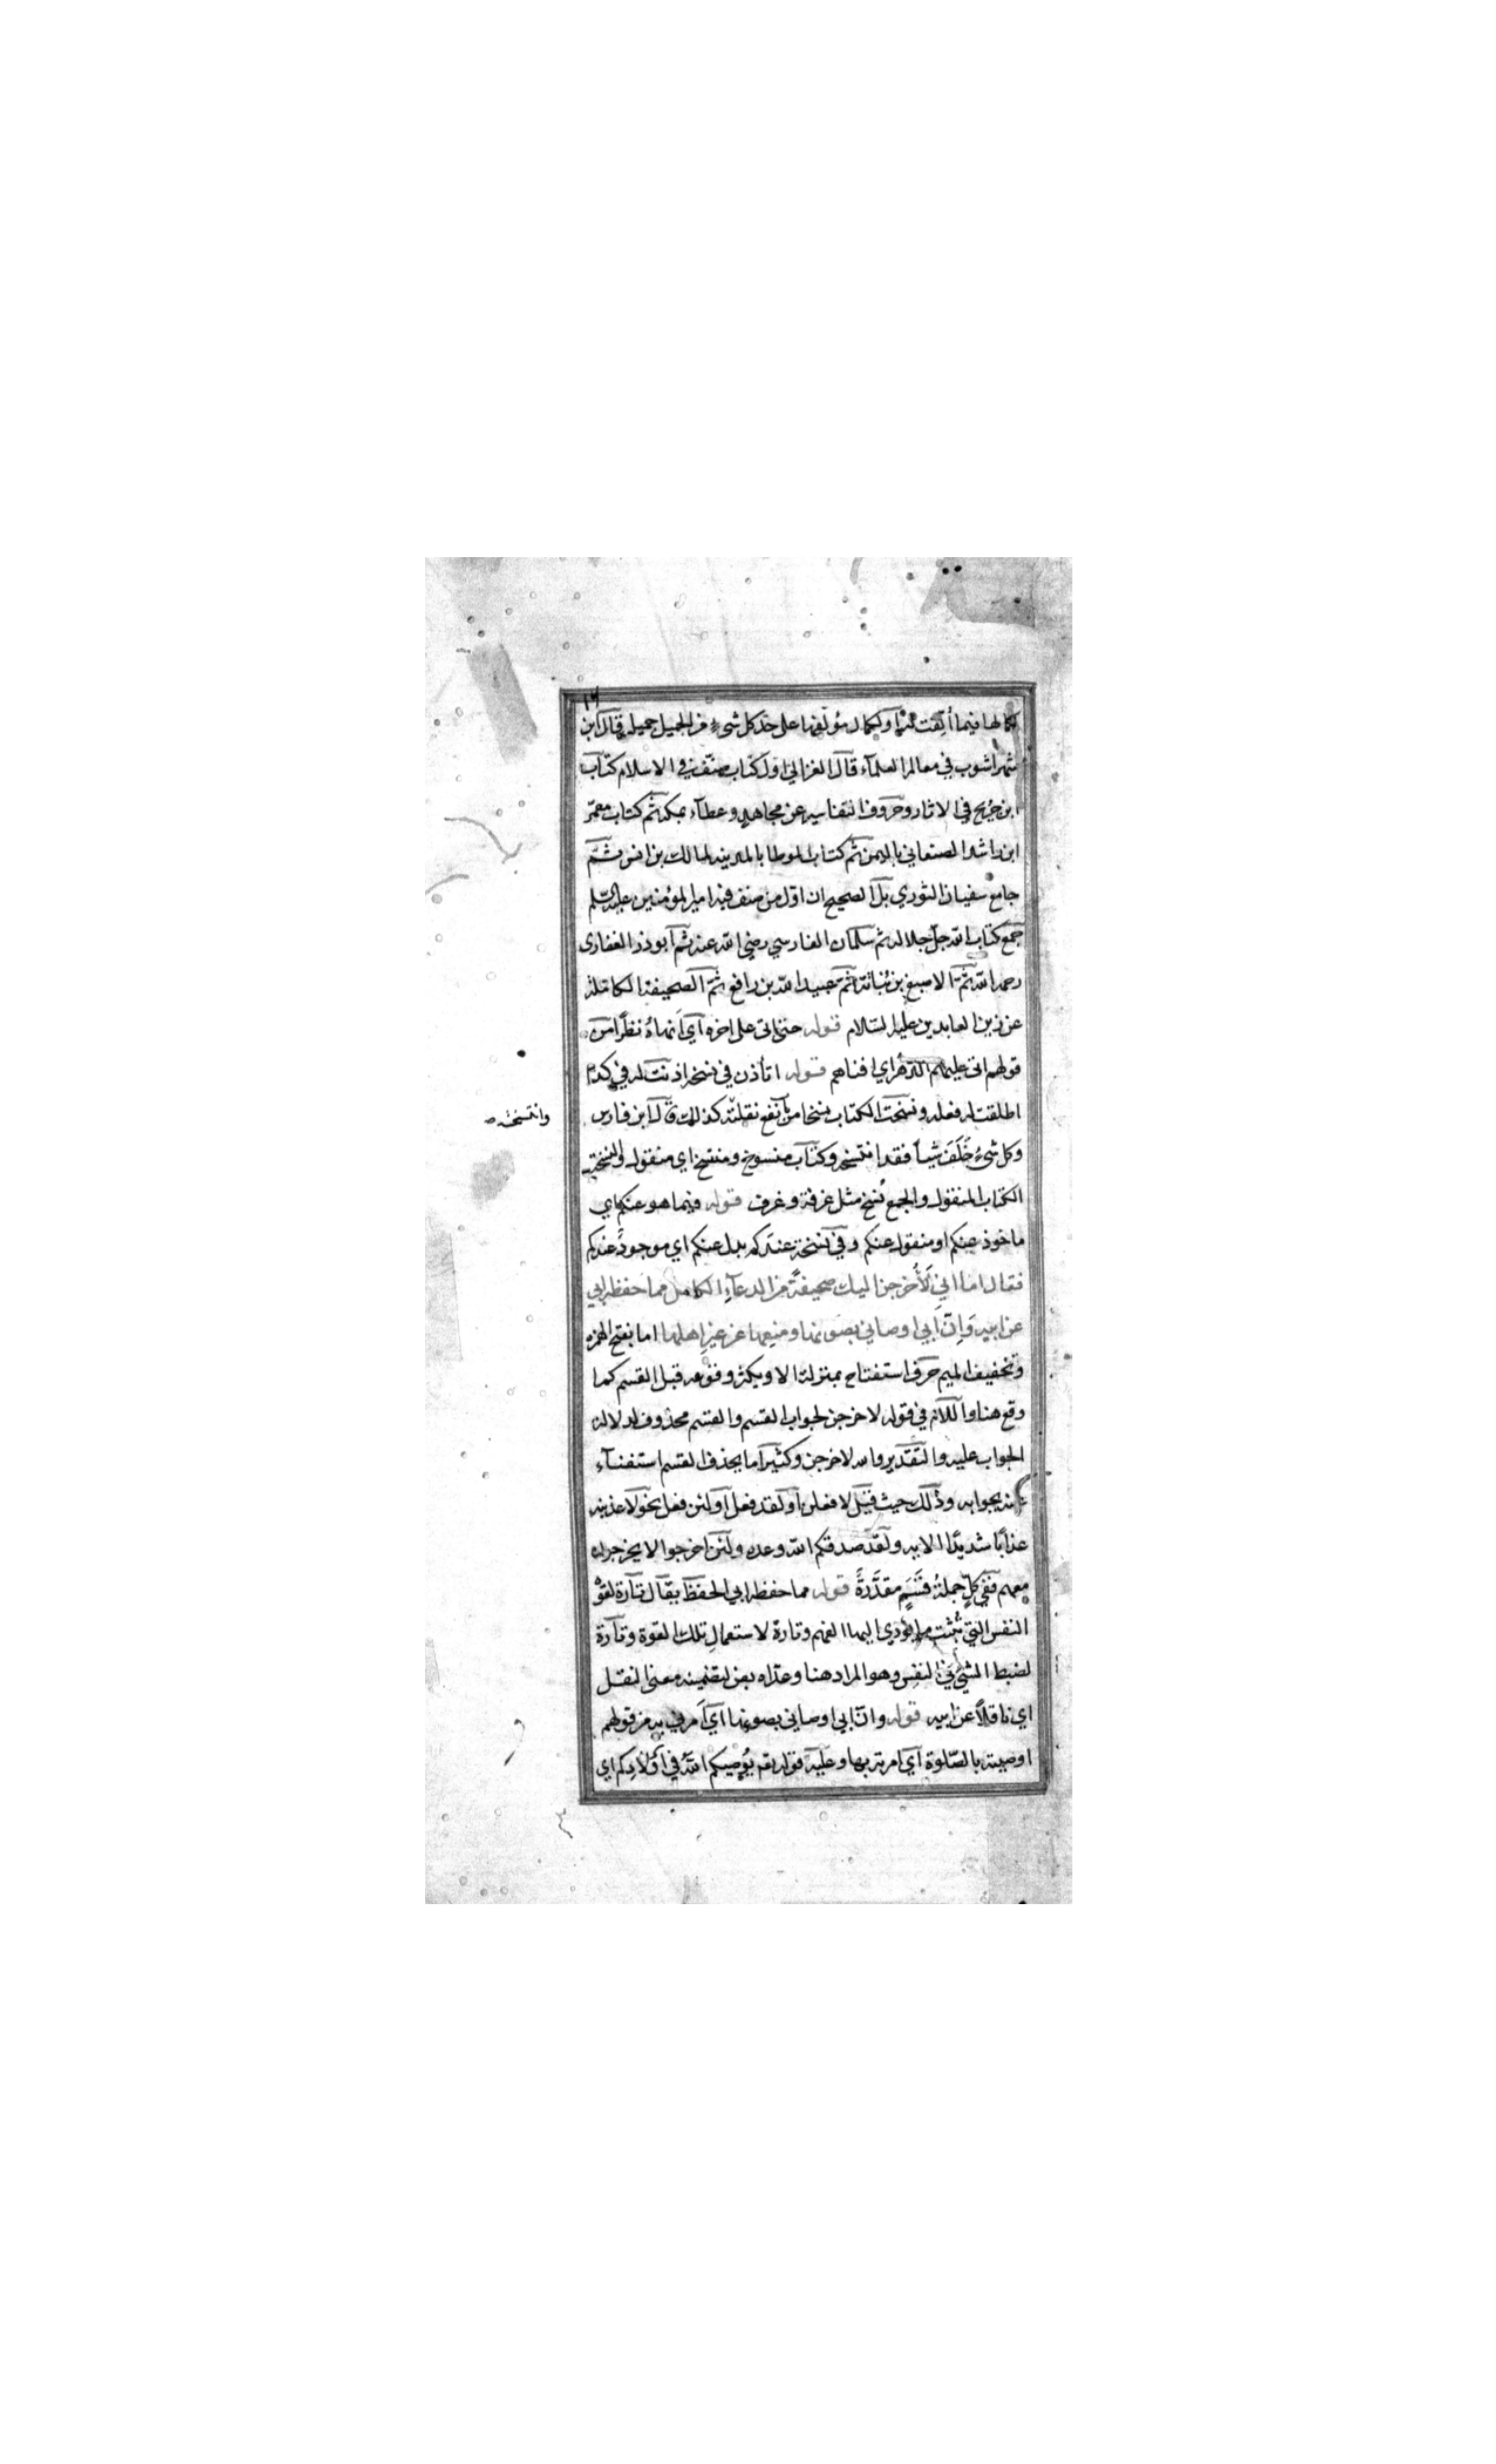 ١٦
لكمالها فيما ألفت له او لكمال مؤلفها على حد كل شيء من الجميل جميل قال ابن
شهراشوب في معالم العلماء قال الغزالي اول كتاب صنف في الاسلام كتاب
ابن جريح في الاثار وحروف التفاسير عن مجاهد وعطاء بمكة ثم كتاب معمر
ابن راشد الصنعاني باليمن ثم كتاب الموطا بالمدينة لمالك بن انس ثم
جامع سفيان الثوري بل الصحيح ان اول من صنف فيه امير المؤمنين عليه السلم
جمع كتاب الله جل جلاله ثم سلمان الفارسي رضي الله عنه ثم ابوذر الغفاري
رحمه الله ثم الاصبغ بن نباتة ثم عبيد الله بن رافع ثم الصحيفة الكاملة
عن زين العابدين عليه السلام قوله حتى اتى على اخره اي انهاه نظرا من
قولهم اتى عليهم الدهر اي افناهم قوله اتأذن في نسخه اذنت له في كذا
اطلقت له فعله ونسخت الكتاب نسخا من باب نفع نقلته كذلك قال ابن فارس
وانتسخته ص
وكل شيء خلف شيأ فقد انتسخه وكتاب منسوخ ومنتسخ اي منقول والنسخة
الكتاب المنقول والجمع نسخ مثل غرفة وغرف قوله فيما هو عنكم اي
ماخوذ عنكم او منقول عنكم وفي نسخة عندكم بدل عنكم اي موجود عندكم
فقال اما اني لأخرجن اليك صحيفة من الدعآء الكامل مما حفظه ابي
عن ابيه وان ابي اوصاني بصونها ومنعها عن غير اهلها اما بفتح الهمزه
وتخفيف الميم حرف استفتاح بمنزلة الا ويكثر وقوعه قبل القسم كما
وقع هنا واللام في قوله لاخرجن لجواب القسم والقسم محذوف لدلالة
الجواب عليه والتقدير والله لاخرجن وكثيرا ما يحذف القسم استغنآء
عنه بجوابه وذلك حيث قيل لافعلن او لقد فعل او لئن فعل نحو لاعذبنه
عذابا شديدا الايه ولقد صدقكم الله وعده ولئن اخرجوا لا يخرجون
معهم ففي كل جملة قسم مقدرة قوله مما حفظه ابي الحفظ يقال تارة لقوة
النفس التي تثبت ما يؤدي اليها الفهم وتارة لاستعمال تلك القوة وتارة
لضبط الشيء في النفس وهو المراد هنا وعداه بعن لتضمينه معنى النقل
اي ناقلا عن ابيه قوله وان ابي اوصاني بصونها اي امرني به من قولهم
اوصيته بالصلوة اي امرته بها وعليه قوله تع يوصيكم الله في اولادكم اي